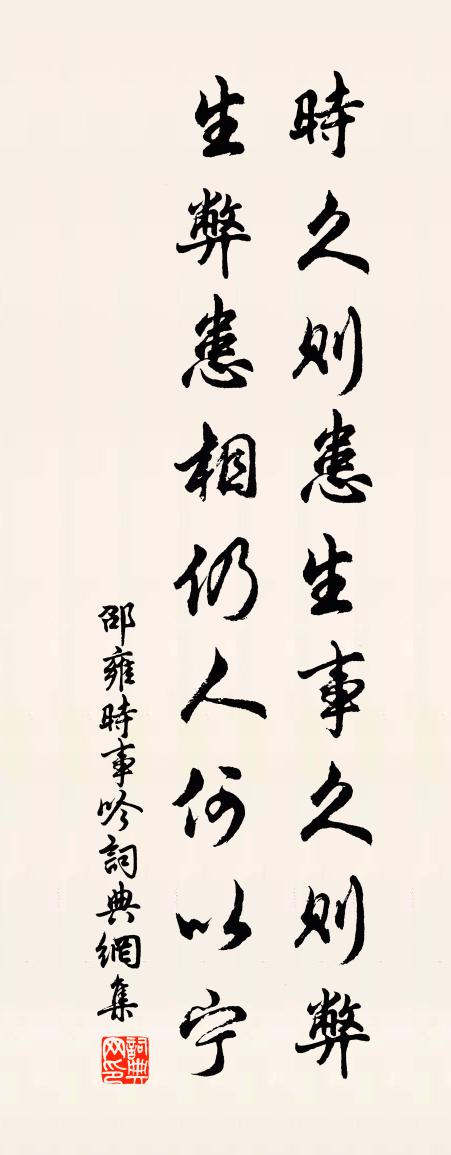 時久則患生事久則弊
生弊患相仍人何以宁
邵雍時事吟詞典網集
詞典网印